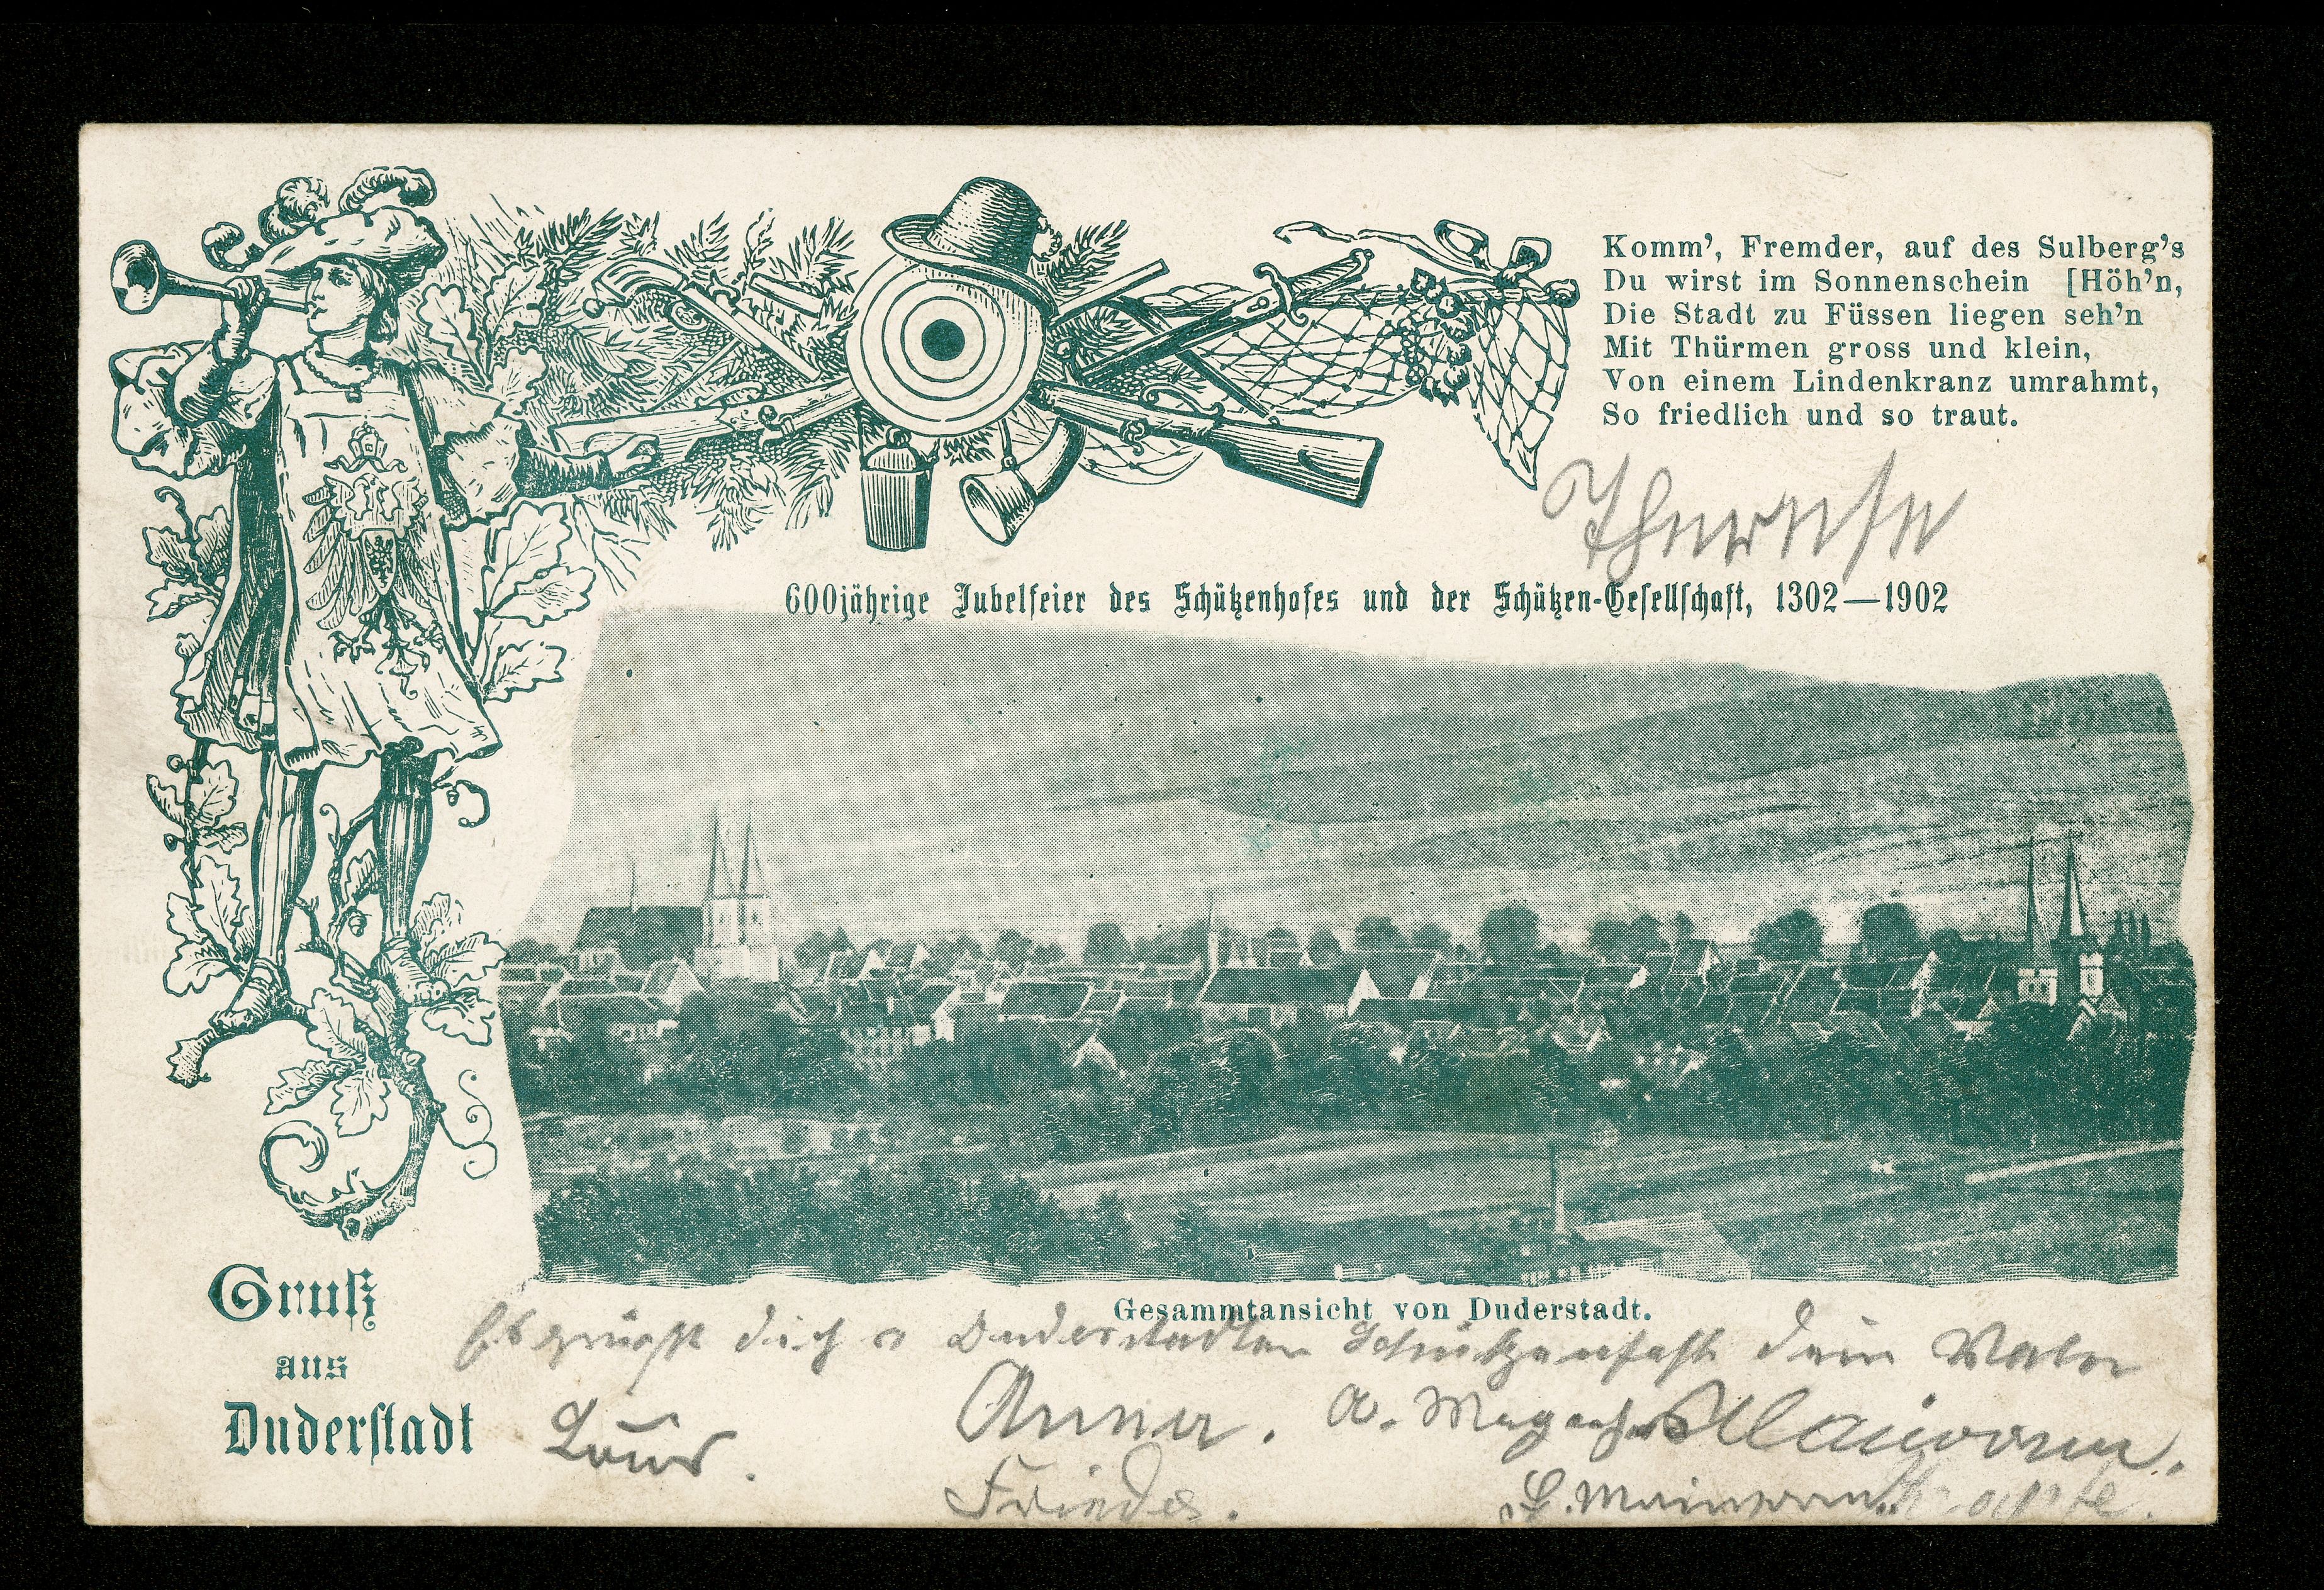 Komm', Fremder, auf des Sulberg's
Du wirst im Sonnenschein [Höh'n,
Die Stadt zu Füssen liegen seh'n
Mit Thürmen gross und klein,
Von einem Lindenkranz umrahmt,
So friedlich und so traut.
Therese
600jährige Jubelfeier des Schützenhofes und der Schützen-Gesellschaft, 1302—1902
Gesammtansicht von Duderstadt.
Gruß
aus
Duderstadt
Es grüßt dich Duderstadter Schützenfest dein Vater
Louis. Anna. A.
Friede.